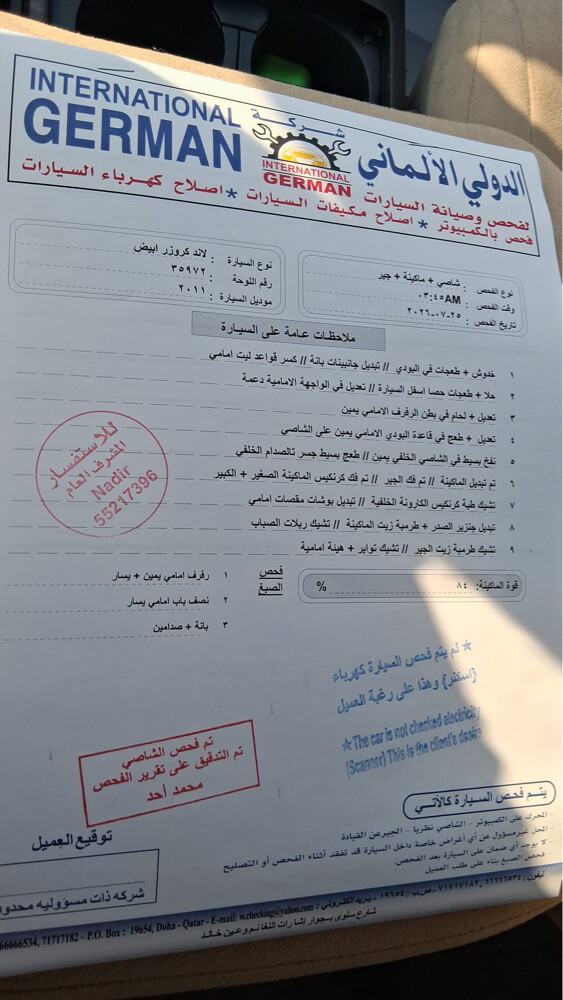 INTERNATIONAL
GERMAN
شركة
الدولي الألماني
INTERNATIONAL
GERMAN
لفحص وصيانة السيارات
فحص بالكمبيوتر * اصلاح مكيفات السيارات * اصلاح كهرباء السيارات
نوع الفحص : شاصي + ماكينة + جير
وقت الفحص : ٠٣:٤٥AM
تاريخ الفحص : ٢٥-٠٧-٢٠٢٦
نوع السيارة : لاند كروزر ابيض
رقم اللوحة : ٣٥٩٧٢
موديل السيارة : ٢٠١١
ملاحظات عامة على السيارة
١ خدوش + طعجات في البودي // تبديل جانبينات بانة // كسر قواعد ليت امامي
٢ حلا + طعجات حصا اسفل السيارة // تعديل في الواجهة الامامية دعمة
٣ تعديل + لحام في بطن الرفرف الامامي يمين
٤ تعديل + طعج في قاعدة البودي الامامي يمين على الشاصي
٥ نفخ بسيط في الشاصي الخلفي يمين // طعج بسيط جسر تالصدام الخلفي
٦ تم تبديل الماكينة // تم فك الجير // تم فك كرنكيس الماكينة الصغير + الكبير
٧ تشيك طبة كرنكيس الكارونة الخلفية // تبديل بوشات مقصات امامي
٨ تبديل جنزير الصدر + طرمبة زيت الماكينة // تشيك ربلات الصباب
٩ تشيك طرمبة زيت الجير // تشيك تواير + هيئة امامية
للاستفسار
المشرف العام
Nadir
55217396
قوة الماكينة: ٨٤ %
فحص
الصبغ
١ رفرف امامي يمين + يسار
٢ نصف باب امامي يسار
٣ بانة + صدامين
* لم يتم فحص السيارة كهرباء
{اسكنر} وهذا على رغبة العميل
* The car is not checked electricity
(Scanner) This is the client's desire
تم فحص الشاصي
تم التدقيق على تقرير الفحص
محمد أحد
يتم فحص السيارة كالآتي
- المحرك على الكمبيوتر - الشاصي نظريا - الجير عن القيادة
- المحل غير مسؤول عن أي أغراض خاصة داخل السيارة قد تفقد أثناء الفحص أو التصليح
- لا يوجد أي ضمان على السيارة بعد الفحص.
- فحص الصبغ بناء على طلب العميل
توقيع العميل
شركة ذات مسؤوليه محدود
تليفون : ٦٦٦٦٦٥٣٤, ٧١٧١٧١٨٢ - ص.ب : ١٩٦٥٤ - بريد الكتروني :
66666534, 71717182 - P.O. Box : 19654, Doha - Qatar - E-mail: w.checking@yahoo.com
شارع سلوى بجوار إشارات اللقانم وعين خالد